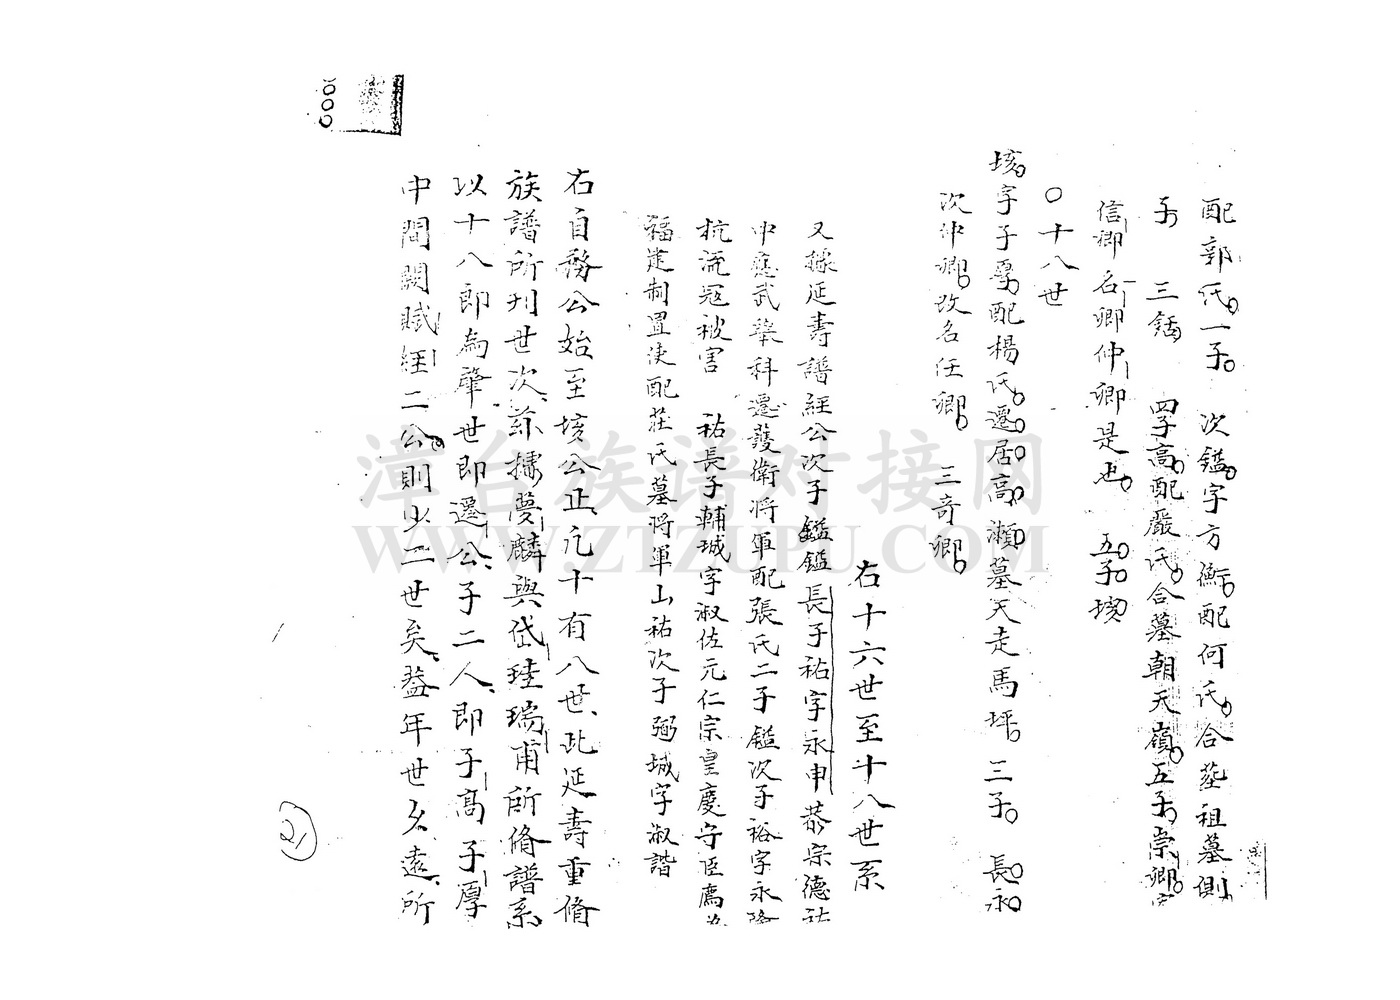 配郭氏一子 次鎰字方衡配何氏合葬祖墓側
子 三銛 四子高配嚴氏合墓朝天嶺五子崇卿字
信卿名卿仲卿是也 五子垓
〇十八世
垓字子厚配楊氏遷居高瀬墓天走馬坪三子 長永
次仲卿改名任卿 三奇卿
右十六世至十八世系
又據延壽譜経公次子鎰鎰長子祐字永申恭宗德祐
中應武舉科遷護衛將軍配張氏二子鎰次子裕字永隆
杭流冦被害 祐長子輔城字淑佐元仁宗皇慶守臣薦為
福建制置使配莊氏墓將軍山祐次子弼城字淑諧
右自務公始至垓公止凢十有八世此延壽重脩
族譜所刊世次茲據夢麟與岱瑳瑞甫所脩譜系
以十八郎為肇世即遷公子二人即子髙子厚
中間闕賦経二公則少二世矣盖年世久遠所
000
2
漳台族谱对接网
WWW.ZTZUPU.COM